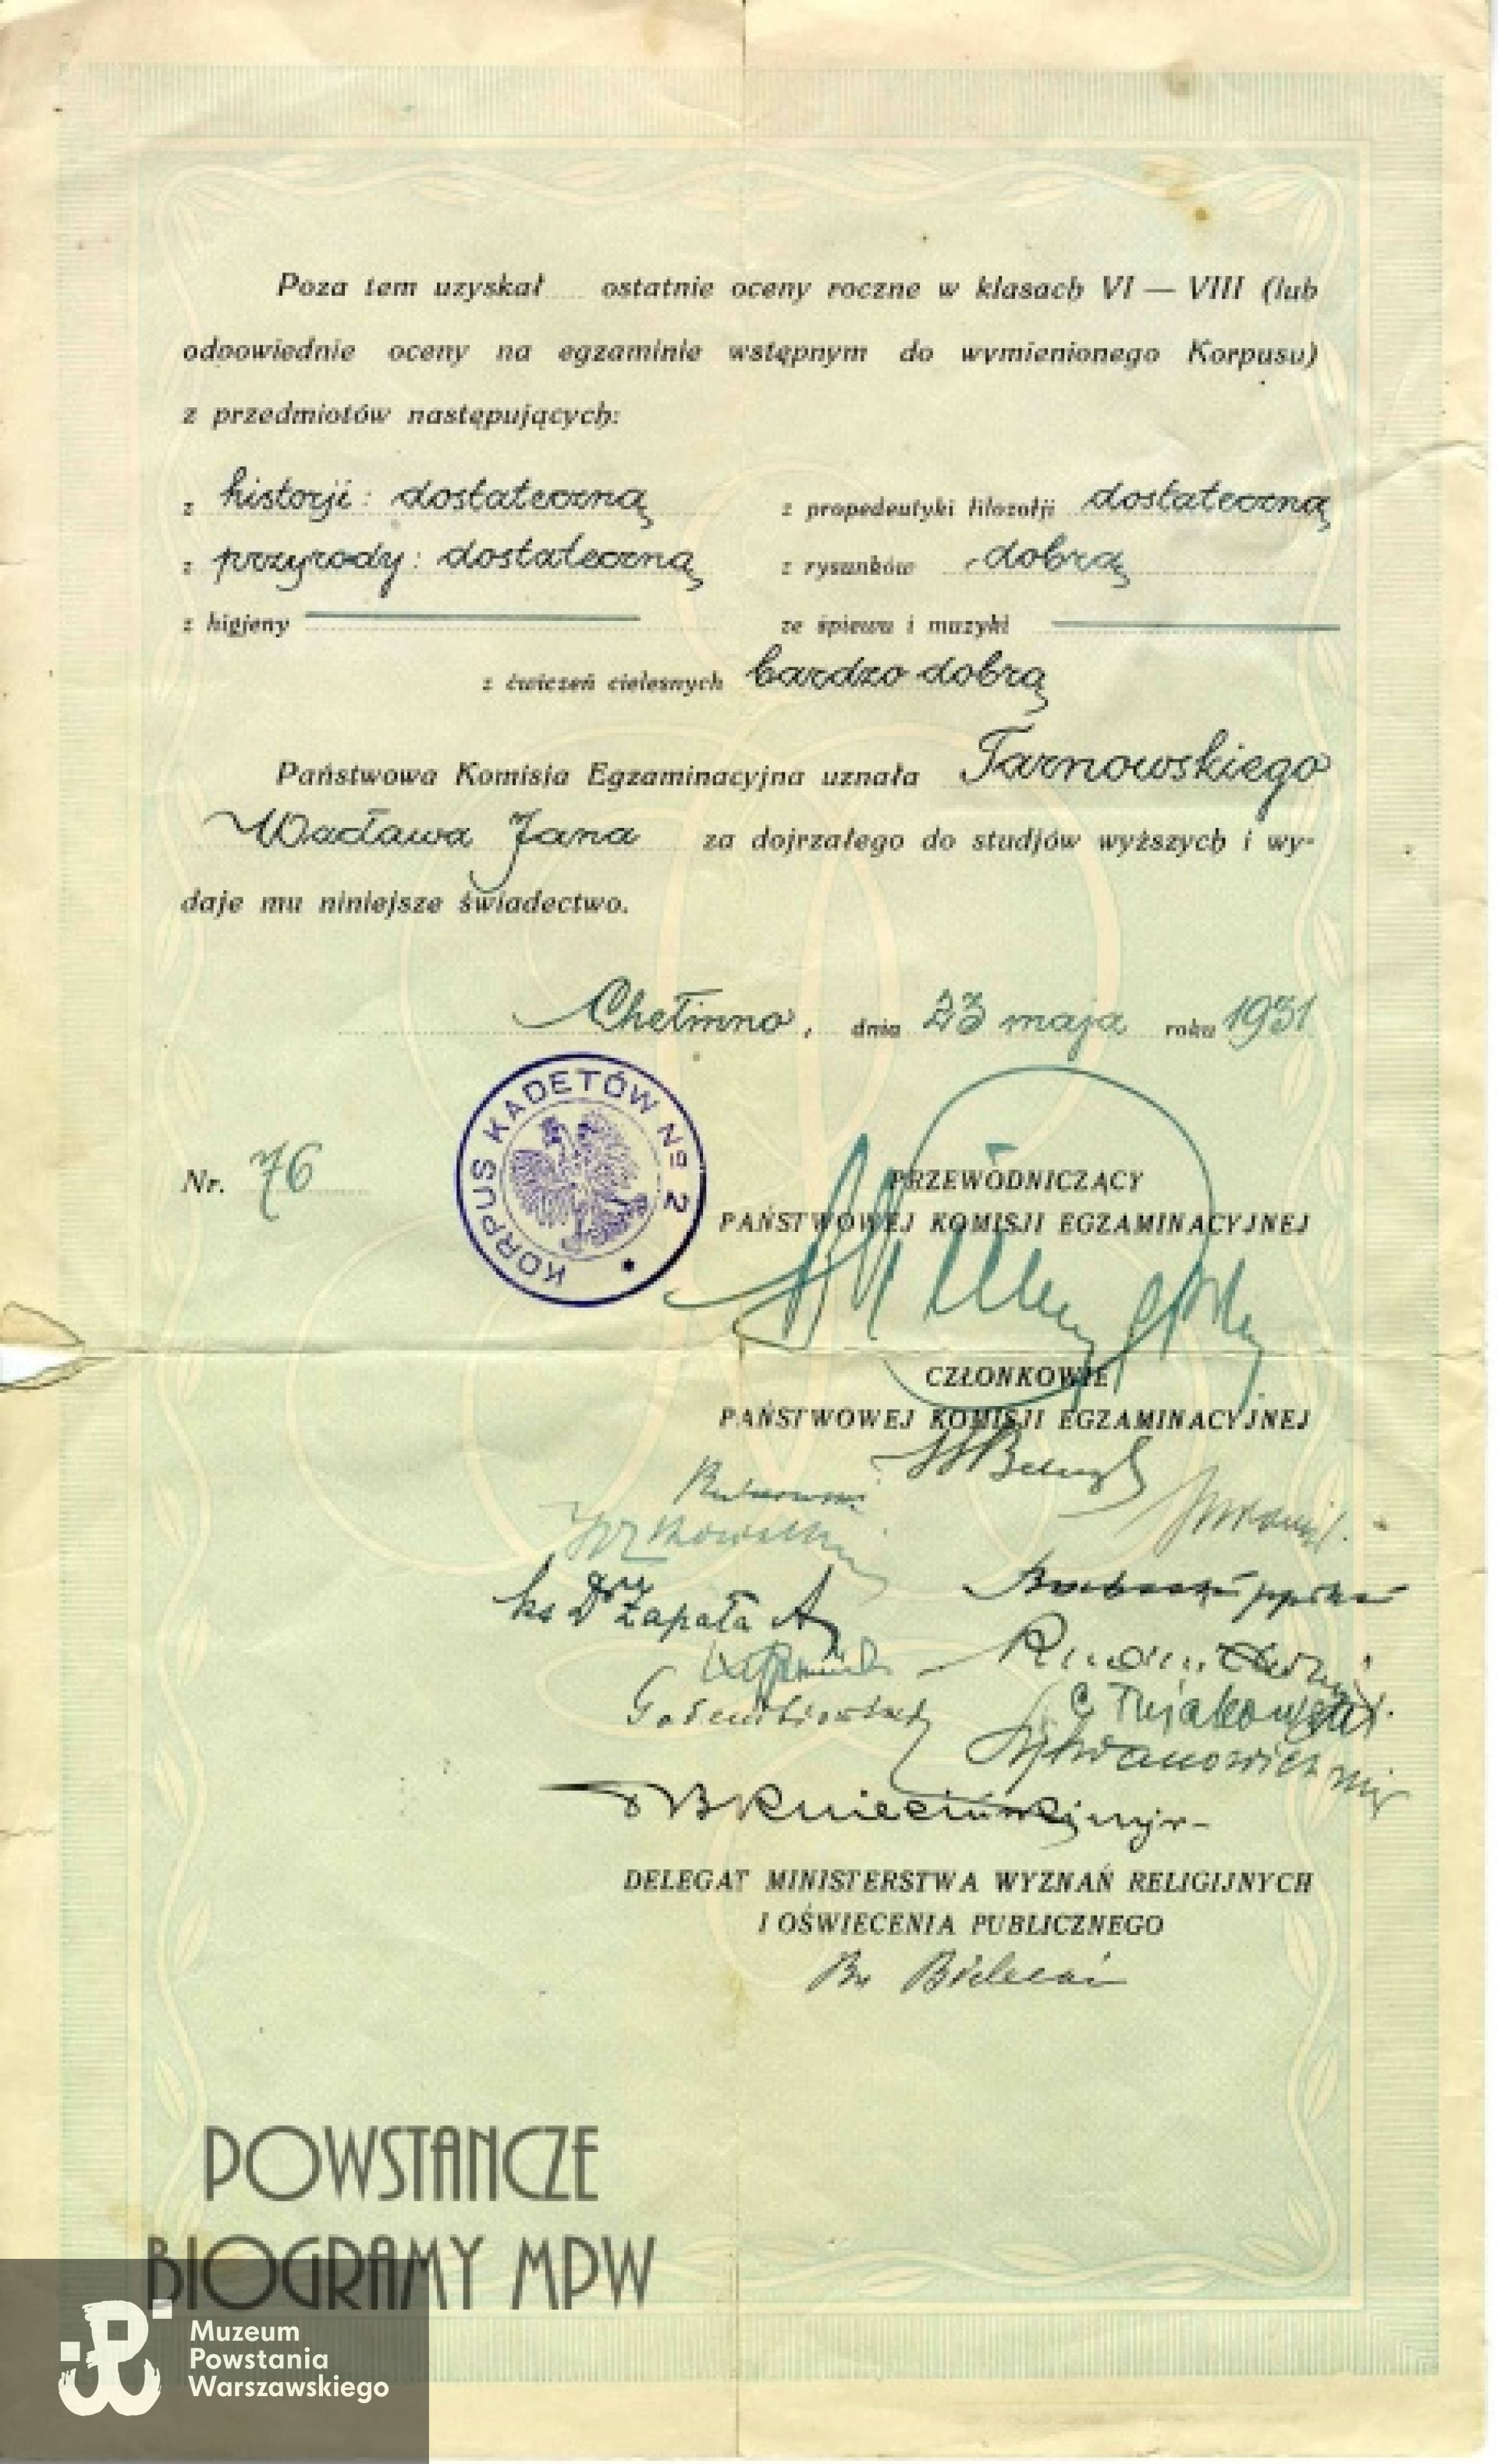 Poza tem uzyskał ostatnie oceny roczne w klasach VI — VIII (lub
odpowiednie oceny na egzaminie wstępnym do wymienionego Korpusu)
z przedmiotów następujących:
z historji: dostateczną z propedeutyki filozofji dostateczną
z przyrody: dostateczną z rysunków dobrą
z higjeny ze śpiewu i muzyki
z ćwiczeń cielesnych bardzo dobrą
Państwowa Komisja Egzaminacyjna uznała Tarnowskiego
Wacława Jana za dojrzałego do studjów wyższych i wy-
daje mu niniejsze świadectwo.
Chełmno, dnia 23 maja roku 1931
KORPUS KADETÓW № 2
Nr. 76
PRZEWODNICZĄCY
PAŃSTWOWEJ KOMISJI EGZAMINACYJNEJ
CZŁONKOWIE
PAŃSTWOWEJ KOMISJI EGZAMINACYJNEJ
ks Dr Zapała A
DELEGAT MINISTERSTWA WYZNAŃ RELIGIJNYCH
I OŚWIECENIA PUBLICZNEGO
Br Bielecki
POWSTANCZE
BIOGRAMY MPW
Muzeum
Powstania
Warszawskiego